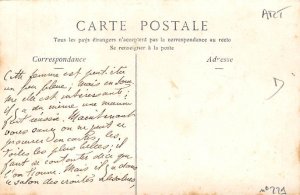 ART
CARTE POSTALE
Tous les pays étrangers n'acceptent pas la correspondance au recto
Se renseigner à la poste
Correspondance
Adresse
Cette femme est peut-être
un peu bleue; mais en som
me elle est intéressante;
il a du même une main
fait
Maintenant
on ne peut se
procurer en cartes, les
toiles les plus belles; il
faut se contenter de ce que
l'on trouve. Mais il y a dans
ce salon des croûtes absolues,
D